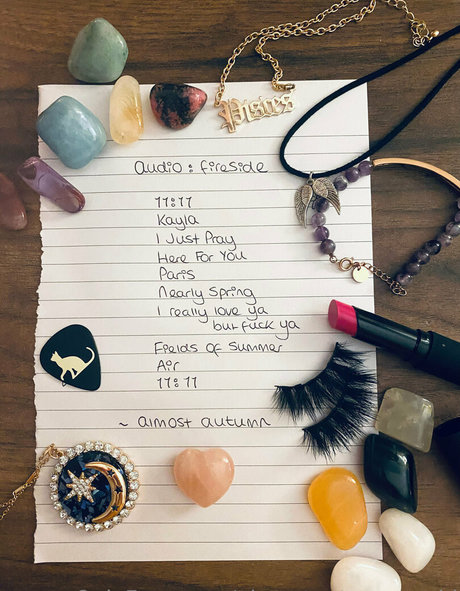 Pisces
audio: fireside
11:11
Kayla
I Just Pray
Here For You
Paris
Nearly Spring
I really love ya
but fuck ya
Fields of Summer
Air
11:11
~ almost autumn